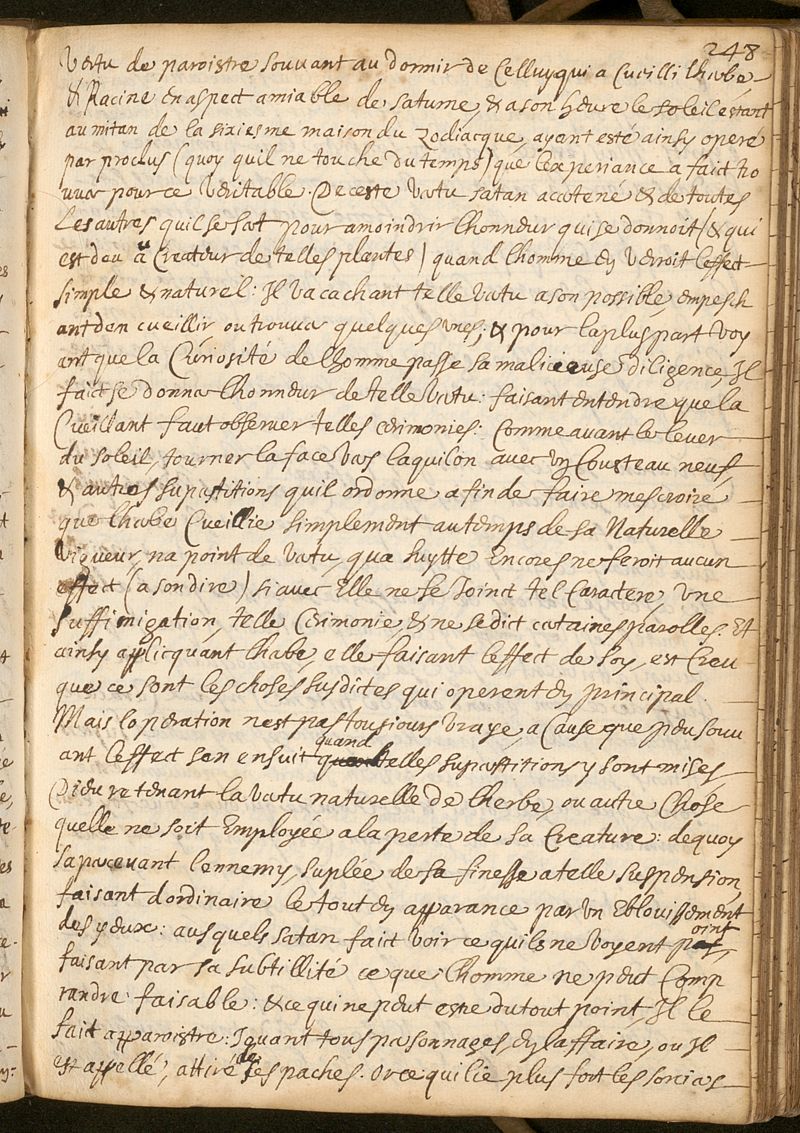 248
Vertu de paroistre souvant au dormir de Celluy qui a Cueilli lherbe
& Racine en aspect amiable de saturne, & a son heure le soleil estant
au mitan de la sixiesme maison du zodiacque, ayant esté ainsy operé
par proclus (quoy quil ne touche du temps) que lexperiance a fait tro
uver pour ce veritable. De ceste vertu satan acertené & de toutes
Les autres quil se sert pour amoindrir lhonneur qui se donnoit (& qui
est deu au Createur de telles plantes) quand lhomme en verroit leffect
simple & naturel: Il va cachant telle vertu a son possible, empesch
ant den cueillir ou trouver quelques unes; & pour la plus part voy
ant que la Curiosité de lhomme passe sa malicieuse diligence, Il
fait se donner lhonneur de telle vertu: faisant entendre que la
Cueillant faut observer telles cerimonies: Comme avant le lever
du soleil, tourner la face vers laquilon avec un Cousteau neuf,
& autres superstitions quil ordonne afin de faire mescroire
que lherbe Cueillie simplement au temps de sa Naturelle
vigueur, na point de vertu, qua luytte Encores ne feroit aucun
effect (a son dire) si avec Elle ne se Joinct tel Caractere, Une
suffimigation, telle Cerimonie & ne se dict certaines parolles. Et
ainsy applicquant lherbe, elle faisant leffect de soy, est Creu
que ce sont les choses susdictes qui operent en principal.
Mais loperation nest pas tousiours vraye, a Cause que peu souv
ant leffect sen ensuit quand telles superstitions y sont mises
Dieu retenant la vertu naturelle de lherbe, ou autre Chose
quelle ne soit Employée a la perte de sa Creature: de quoy
sapercevant lennemy, suplée de sa finesse a telle suspension,
faisant dordinaire le tout en apparance par un Eblouissement
des yeux: ausquels satan fait voir ce quils ne voyent point,
faisant par sa subtillité ce que lhomme ne peut Comp
randre faisable: & ce qui ne peut estre du tout point, Il le
fait apparoistre: Jouant tous personnages, en laffaire, ou Il
est appellé, attiré de ses paches. Or ce qui lie plus fort les sorciers